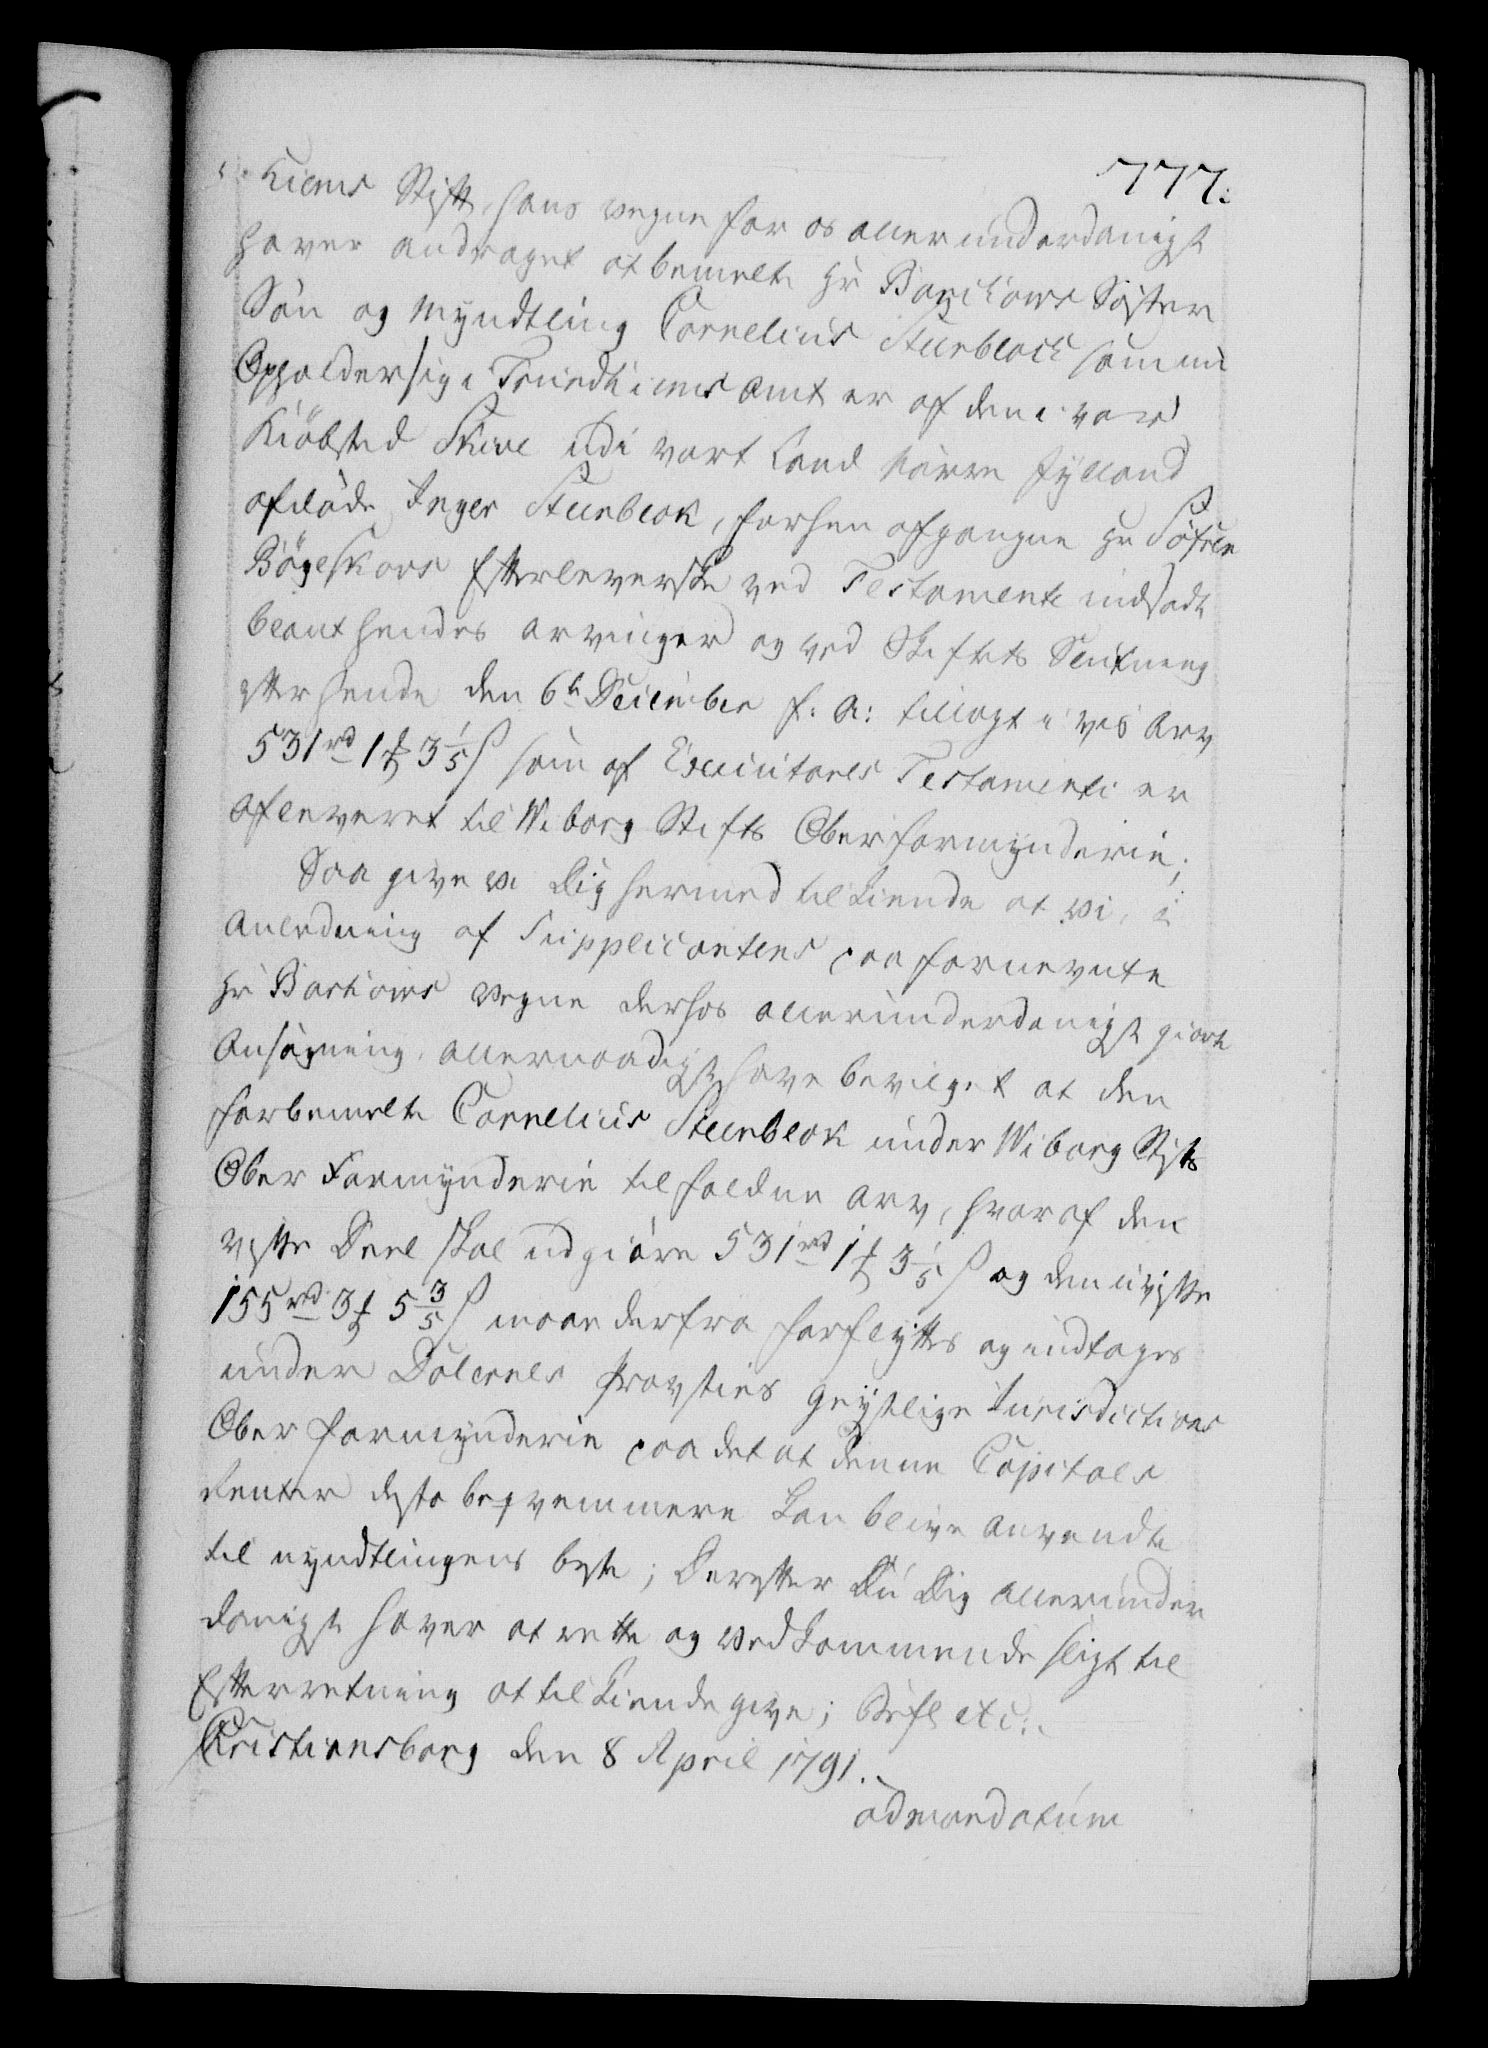 777.
hiems Stift, hans vegne for os allerunderdanigst
haver andraget at bemelte Hr Barchows Søster
Søn og Myndtling Cornelius Steenblock som nu
Opholder sig i Trundhiems Amt er af den i vor
Kiøbsted Skive udi vort Land Nørre Jylland
afdøde Inger Steenblok, forhen afgangne Hr
Bøgeskovs Efterleverske ved Testamente indsadt
blant hendes Arvinger og ved Skiftets Slutning
efter hende den 6te December f: A: tillagt i vis Arv
531 rd 1 ℔ 3 1/5 ß som af Executores Testamenti er
afleveret til Wiborg Stifts Oberformynderie;
Saa give vi Dig hermed tilkiende at vi, i
Anledning af Supplicantens paa fornevnte
Hr Barchows vegne derhos allerunderdanigst giorte
Ansøgning, allernaadigst have bevilget at den
forbemelte Cornelius Steenblok under Wiborg Stifts
Ober Formynderie tilfaldne Arv, hvoraf den
visse Deel skal udgiøre 531 rd 1 ℔ 3 1/5 ß og den uvisse
155 rd 3 ℔ 5 3/5 ß maae derfra forflyttes og indtages
under Dalernes Provsties Geistlige Jurisdictions
Ober formynderie paa det at denne Capitals
Renter desto beqvemmere kan blive anvendte
til myndtlingens beste; Derefter Du Dig allerunder
danigst haver at rette og vedkommende sligt til
Efterretning at tilkiende give; Befl etc:
Christiansborg den 8 April 1791.
ad mandatum